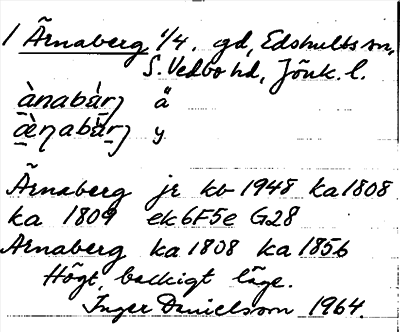 / Ärnaberg 1/4. gd, Edshults sn,
S. Vedbo hd, Jönk. l.
ànabàrj ä
æ̀nabàrj y
Ärnaberg jr kb 1948 ka 1808
ka 1809 ek 6F5e G28
Arnaberg ka 1808 ka 1856
Högt, backigt läge.
Inger Danielsson 1964.